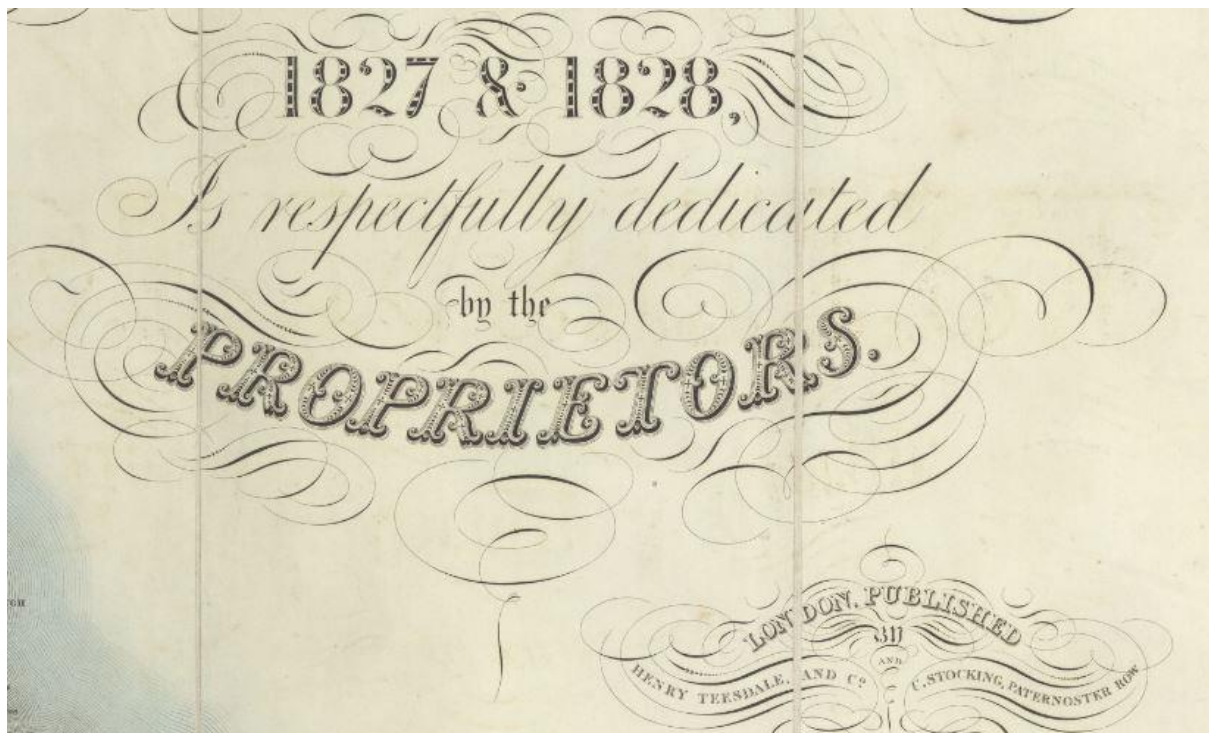 1827 & 1828,
Is respectfully dedicated
by the
PROPRIETORS.
LONDON. PUBLISHED
BY
HENRY TEESDALE, AND Co.
AND
C. STOCKING, PATERNOSTER ROW